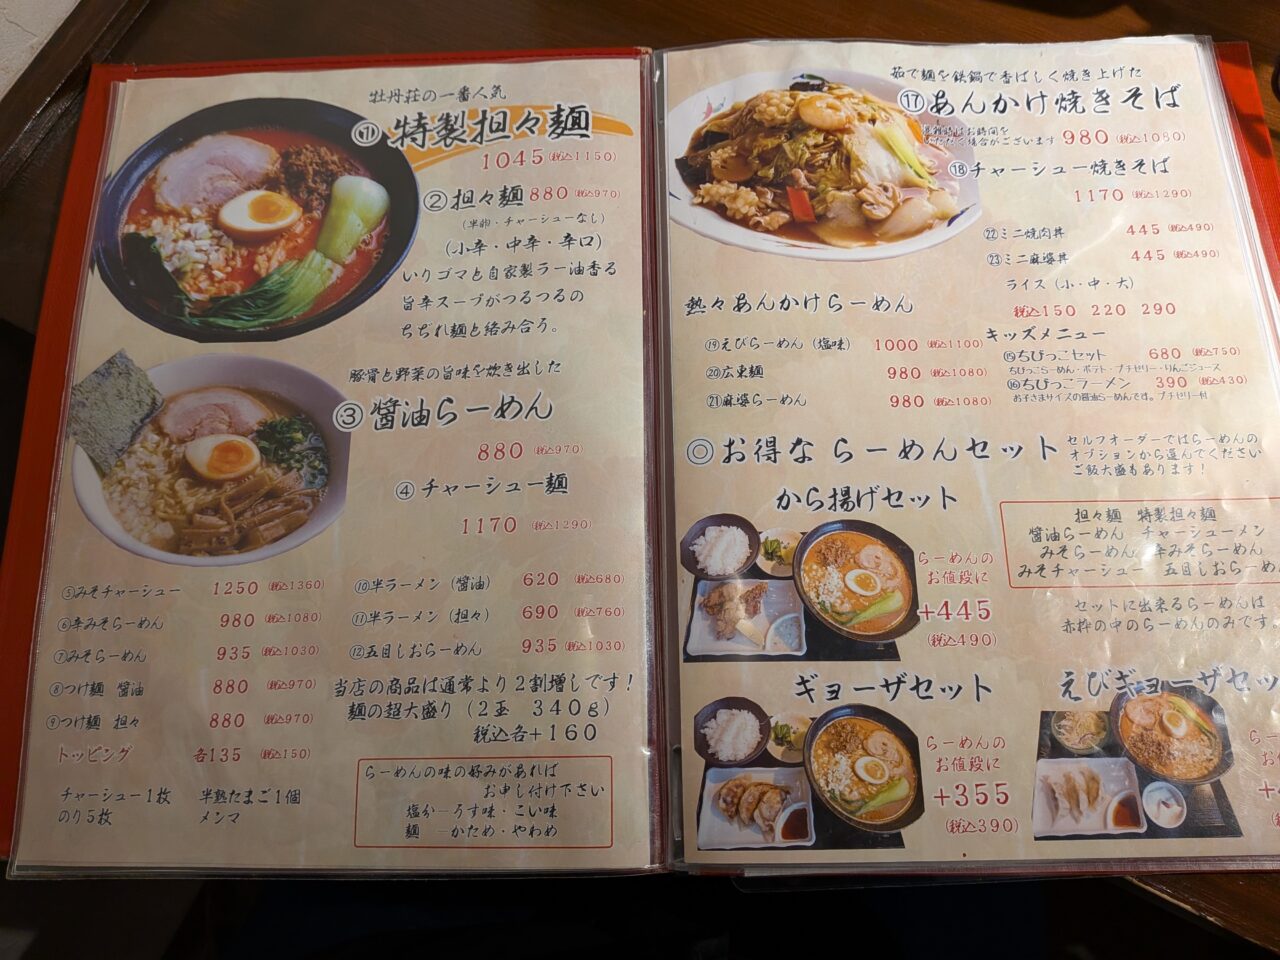 牡丹荘の一番人気
①特製担々麺
1045(税込1150)
②担々麺 880 (税込970)
(半卵・チャーシューなし)
(小辛・中辛・辛口)
いりゴマと自家製ラー油香る
旨辛スープがつるつるの
ちぢれ麺と絡み合う。
豚骨と野菜の旨味を炊き出した
③醤油らーめん
880 (税込970)
④チャーシュー麺
1170 (税込1290)
⑤みそチャーシュー 1250 (税込1360)
⑥辛みそらーめん 980 (税込1080)
⑦みそらーめん 935 (税込1030)
⑧つけ麺 醤油 880 (税込970)
⑨つけ麺 担々 880 (税込970)
トッピング 各135 (税込150)
チャーシュー1枚 半熟たまご1個
のり5枚 メンマ
⑩半ラーメン(醤油) 620 (税込680)
⑪半ラーメン(担々) 690 (税込760)
⑫五目しおらーめん 935 (税込1030)
当店の商品は通常より2割増しです!
麺の超大盛り(2玉 340g)
税込各+160
らーめんの味の好みがあれば
お申し付け下さい
塩分―うす味・こい味
麺 ―かため・やわめ
茹で麺を鉄鍋で香ばしく焼き上げた
⑰あんかけ焼きそば
混雑時はお時間を
いただく場合がございます 980 (税込1080)
⑱チャーシュー焼きそば
1170 (税込1290)
㉒ミニ焼肉丼 445 (税込490)
㉓ミニ麻婆丼 445 (税込490)
ライス(小・中・大)
税込150 220 290
熱々あんかけらーめん
⑲えびらーめん(塩味) 1000 (税込1100)
⑳広東麺 980 (税込1080)
㉑麻婆らーめん 980 (税込1080)
キッズメニュー
⑮ちびっこセット 680 (税込750)
ちびっこらーめん・ポテト・プチゼリー・りんごジュース
⑯ちびっこラーメン 390 (税込430)
お子さまサイズの醤油らーめんです。プチゼリー付
◎お得な らーめんセット
セルフオーダーではらーめんの
オプションから選んでください
ご飯大盛もあります!
から揚げセット
らーめんの
お値段に
+445
(税込490)
担々麺 特製担々麺
醤油らーめん チャーシューメン
みそらーめん 辛みそらーめん
みそチャーシュー 五目しおらーめん
セットに出来るらーめんは
赤枠の中のらーめんのみです。
ギョーザセット
らーめんの
お値段に
+355
(税込390)
えびギョーザセッ